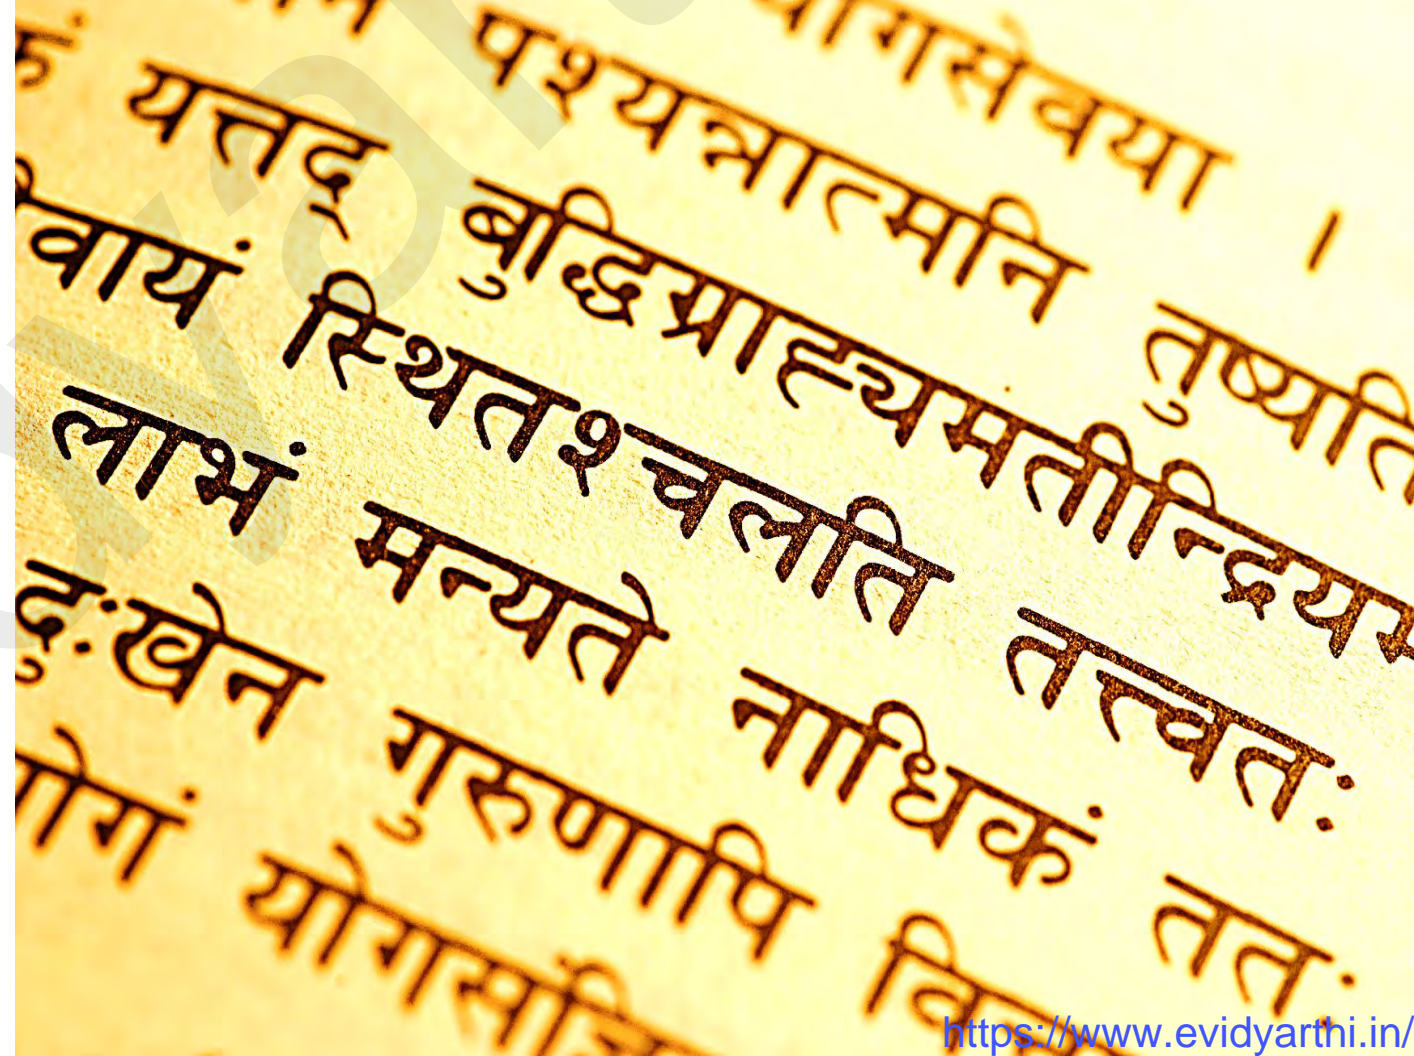 योगसेवया ।
पश्यन्नात्मनि तुष्यति
यत्तद् बुद्धिग्राह्यमतीन्द्रियम
वायं स्थितश्चलति तत्त्वतः
लाभं मन्यते नाधिकं ततः
दुःखेन गुरुणापि
योगं
https://www.evidyarthi.in/